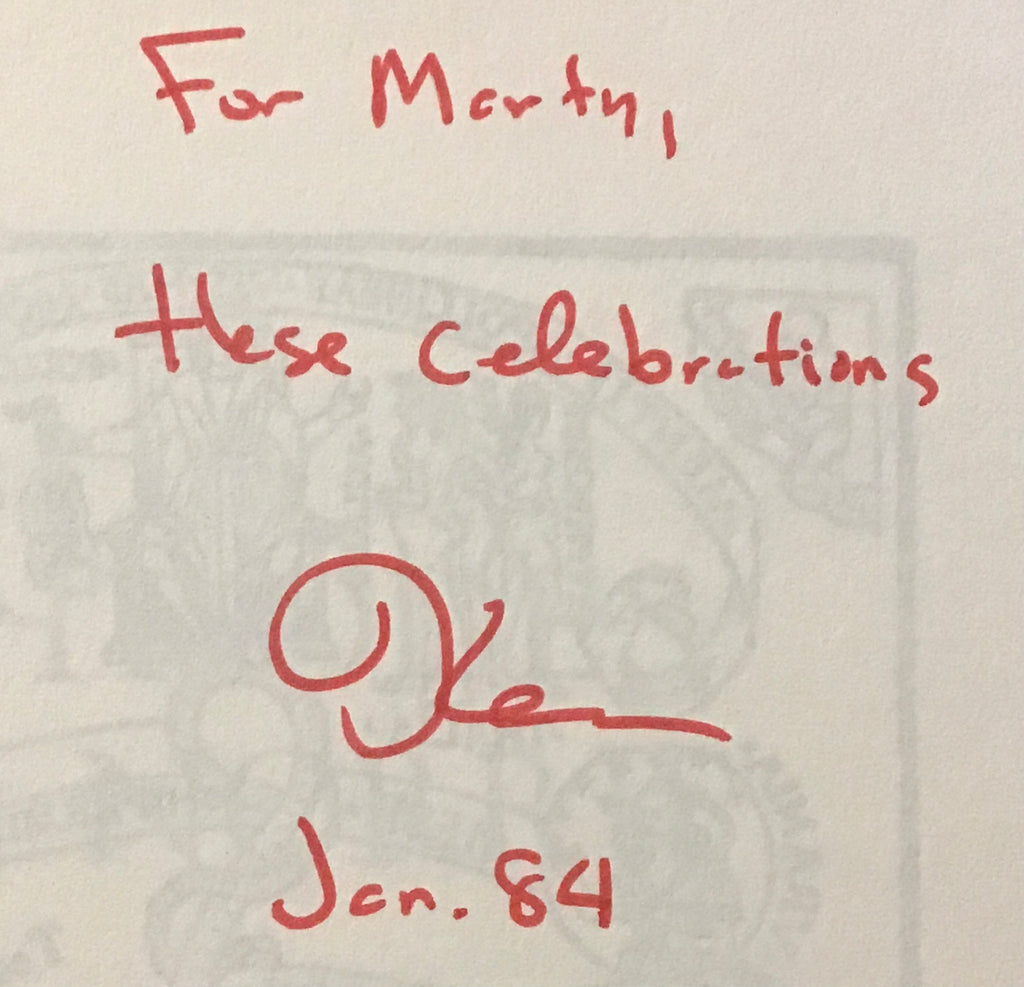 For Martin,
these celebrations
Ken
Jan. 84